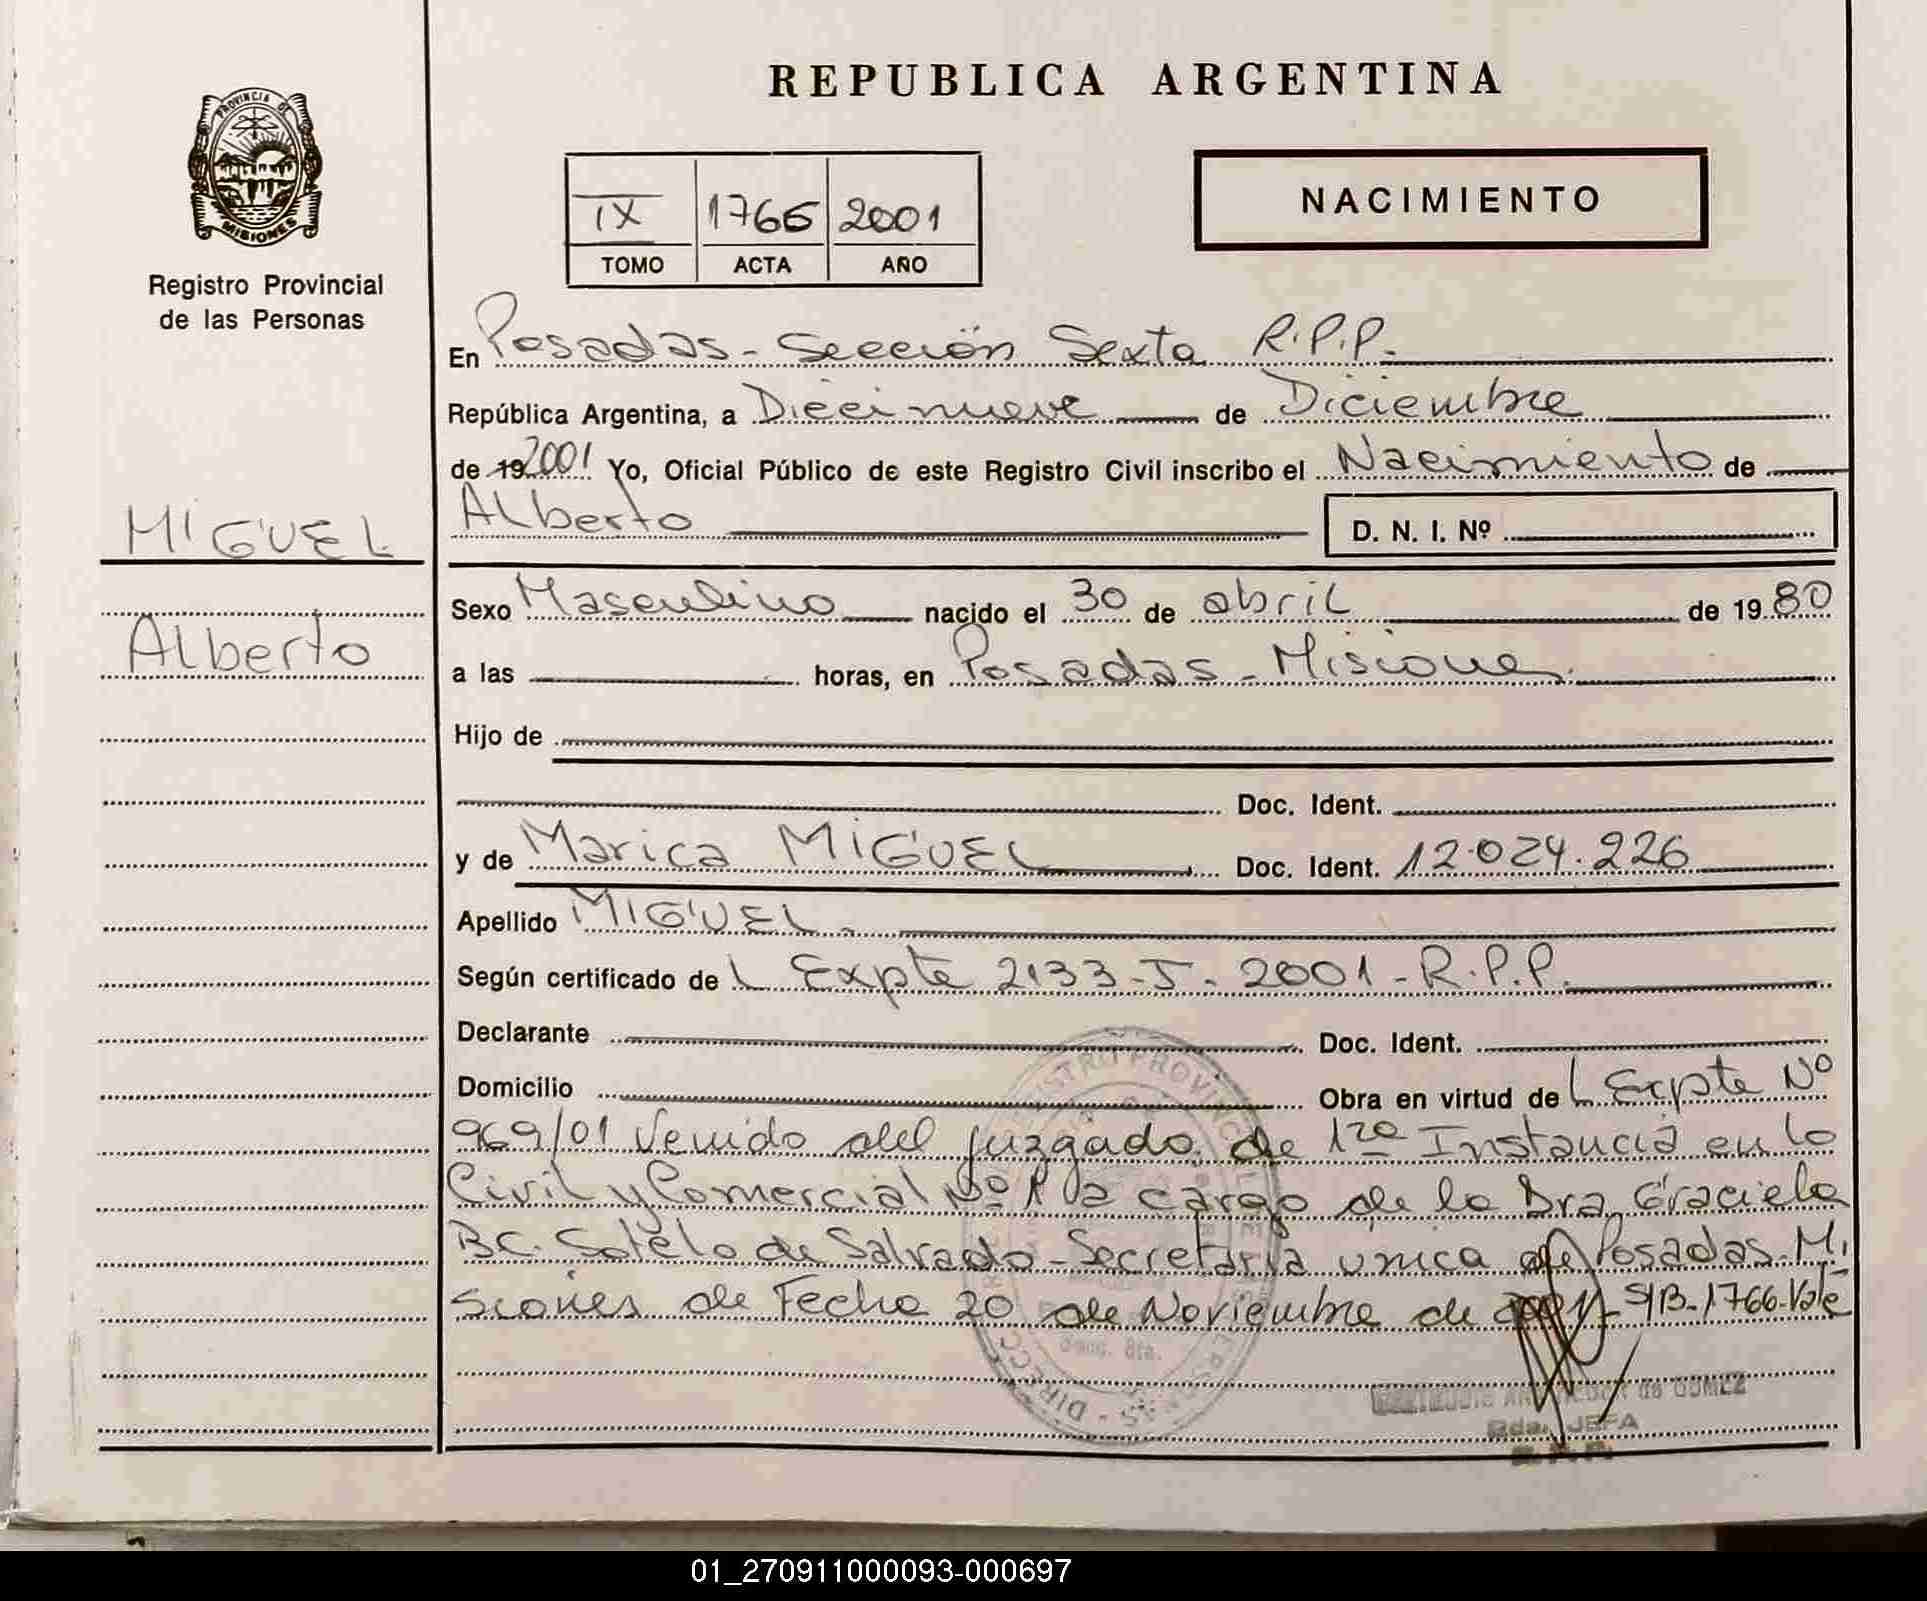 REPUBLICA ARGENTINA
PROVINCIA DE
MISIONES
Registro Provincial
de las Personas
IX 1766 2001
TOMO ACTA AÑO
NACIMIENTO
En Posadas - Sección Sexta R.P.P.
República Argentina, a Diecinueve de Diciembre
de 19 2001 Yo, Oficial Público de este Registro Civil inscribo el Nacimiento de
Alberto D. N. I. Nº
MIGUEL
Alberto
Sexo Masculino nacido el 30 de abril de 19 80
a las horas, en Posadas - Misiones.
Hijo de
Doc. Ident.
y de Marica MIGUEL Doc. Ident. 12.024.226
Apellido MIGUEL.
Según certificado de L Expte 2133-J-2001-R.P.P.
Declarante Doc. Ident.
Domicilio Obra en virtud de L Expte Nº
969/01 Venido del juzgado de 1ra Instancia en lo
Civil y Comercial Nº 1 a cargo de la Dra. Graciela
B.C. Sotelo de Salvado - Secretaría única de Posadas. Mi
siones de Fecha 20 de Noviembre de 2001 - S/B-1766-Vale
de GOMEZ
JEFA
01_270911000093-000697